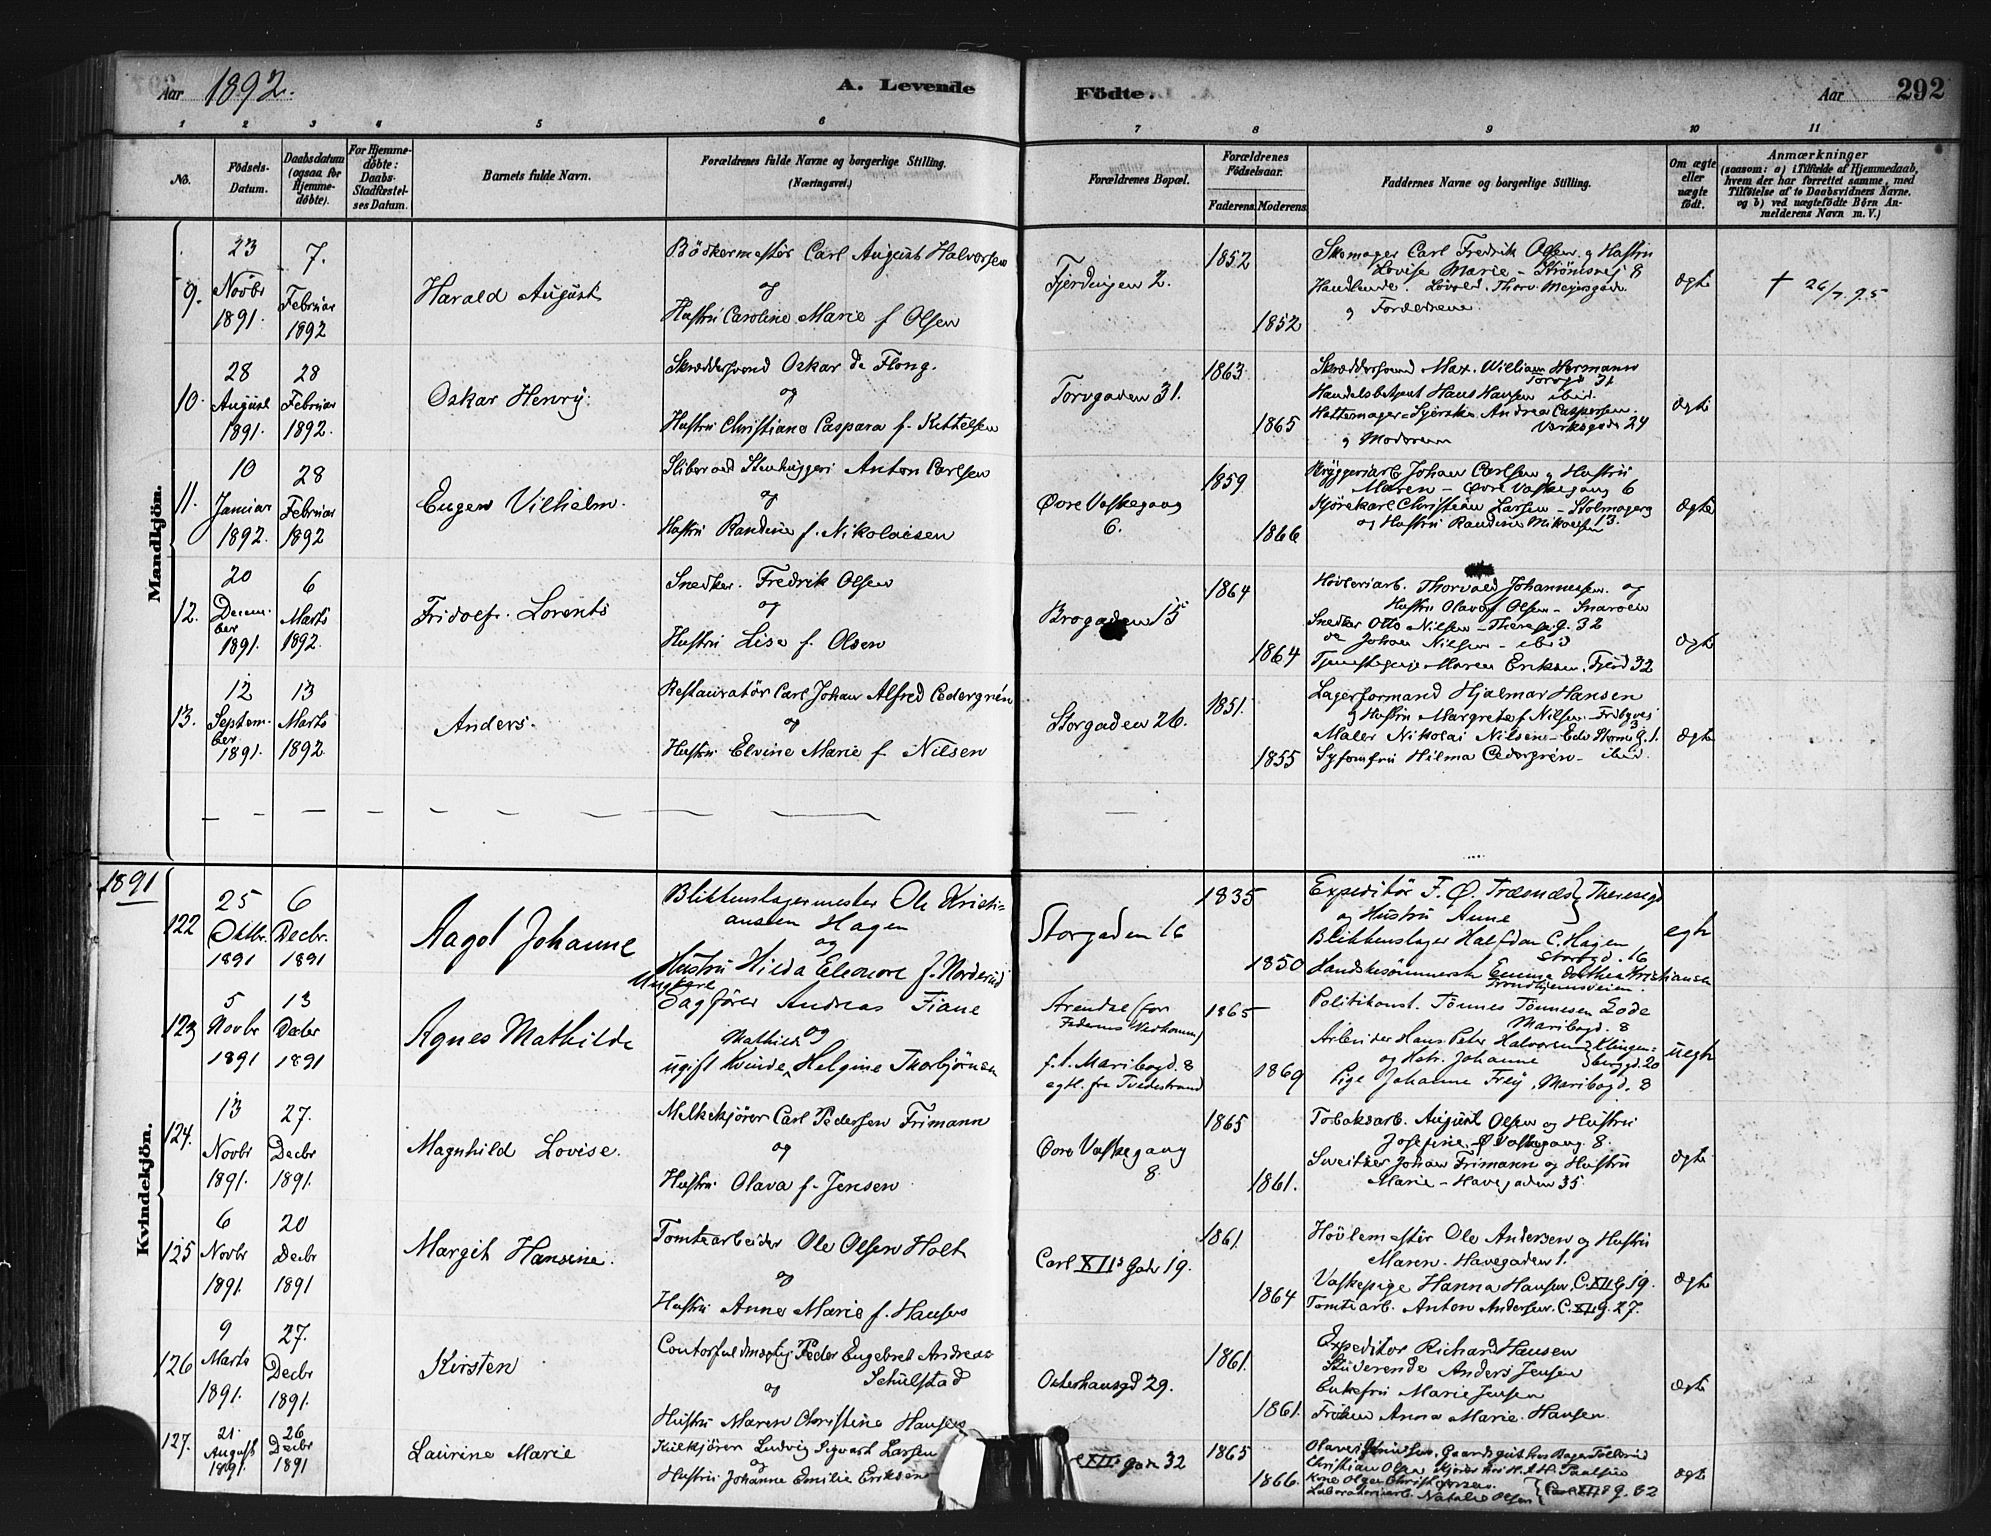 Aar 1892.
A. Levende
Födte.
Aar
292
1 2 3 4 5 6 7 8 9 10 11
No.
Födsels-
Datum.
Daabsdatum
(ogsaa for
Hjemme-
døbte).
For Hjemme-
døbte:
Daabs-
Stadfæstel-
ses Datum.
Barnets fulde Navn.
Forældrenes fulde Navne og borgerlige Stilling.
(Næringsvei.)
Forældrenes Bopæl.
Forældrenes
Födselsaar.
Faderens. Moderens.
Faddernes Navne og borgerlige Stilling.
Om ægte
eller
uægte
födt.
Anmærkninger
(saasom: a) i Tilfælde af Hjemmedaab,
hvem der har forrettet samme, med
Tilföielse af to Daabsvidners Navne.
og b) ved uægtefödte Börn An-
melderens Navn m. V.)
Mandkjön.
9.
23
Novbr
1891.
7.
Februar
1892
Harald August
Bödkermester Carl August Halvorsen
og
Hustru Caroline Marie f Olsen
Fjerdingen 2.
1852
1852
Skomager Carl Fredrik Olsen og Hustru
Lovise Marie - Strömsvej 8
Handlende Thorv. Meyersgade
og Forældrene
Ægte
† 26/7 95
10.
28
August
1891.
28
Februar
1892.
Oskar Henry.
Skræddersvend Oskar de Flong.
og
Hustru Christiane Caspara f. Kittelsen
Torvgaden 31.
1863
1865
Skræddersvend Max. William Hermann
Torvgd 31
Handelsbetjent Hans Hansen ibid.
Hattemager- Andrea Caspersen.
Verksgade 24
og Moderen
Ægte
11.
10
Januar
1892.
28
Februar
1892
Eugen Vilhelm.
Sliber ved Stenhuggeri Anton Carlsen
og
Hustru Randine f. Nikolaisen
Øvre Vaskegang
6.
1859
1866
Bryggeriarb Johan Carlsen og Hustru
Maren - Øvre Vaskegang 6
Kjörekarl Christian Larsen - Stolmagerg
og Hustru Randine 13.
Ægte
12.
20
Decem-
ber
1891.
6
Marts
1892.
Fridolf. Lorents
Snedker. Fredrik Olsen
og
Hustru Lise f. Olsen
Brogaden 15
1864
1864
Høvleriarb. Thorvald Johannesen. og
Hustru Olava f Olsen - Snaroen
Snedker Otto Nilsen - Therese g. 32
do Johan Nilsen - ibid
Tjenestepige Maren Eriksen. Fjerd 32
Ægte
13.
12
Septem-
ber
1891.
13
Marts
1892
Anders.
Restauratör Carl Johan Alfred Cedergrén
og
Hustru Elvine Marie f. Nilsen
Storgaden 26.
1851.
1855
Lagerformand Hjalmar Hansen
og Hustru Margrete f Nilsen
Maler Nikolai Nilsen - Edv Storms g. 1.
Syjomfru Hilma Cedergrén - ibid.
Ægte
1891
Kvindekjön.
122
25
Oktbr.
1891
6
Decbr.
1891
Aagot Johanne
Blikkenslagermester Ole Kristi-
ansen Hagen
og
Hustru Hilda Eleonore f. Norderud
Storgaden 16
1835
1850
Expeditör F. Ø. Thereseg
og Hustru Anne
Blikkenslager Halfdan C. Hagen
Storgd. 16
Handskesömmersk Emma Dorthea Kristiansen
Trondhjemsveien.
egte
123
5
Novbr
1891
13
Decbr
1891
Agnes Mathilde
Ungkarl
Sagförer Andreas Fiane
og
ugift Kvinde Mathilde Helgine Thorbjörnsen
Arendal (for
Faderens Vedkomm)
f. t. Maribogd. 8
egtl. fra Tvedestrand
1865
1869
Politikonst. Tönnes Tönnesen Lode
Maribogd. 8
Arbeider Hans Peter Halvorsen Klingen-
og Hstr. Johanne berggd. 20
Pige Johanne Frey, Maribogd. 8
uegte
124.
13
Novbr
1891.
27.
Decbr
1891.
Magnhild Lovise.
Melkekjörer Carl Pedersen Frimann
og
Hustru Olava f. Jensen
Øvre Vaskegang
8.
1865
1861.
Tobaksarb. August Olsen og Hustru
Josefine. Ø Vaskegang. 8.
Sveitzer Johan Frimann og Hustru
Marie - Havegaden 35.
Ægte
125
6
Novbr
1891.
20
Decbr
1891
Margit Hansine.
Tomtearbeider Ole Olsen Holt
og
Hustru Anne Marie f. Hansen
Carl XII's Gade 19.
1861.
1864
Hövlemester Ole Andersen og Hustru
Maren. Havegaden 1.
Vaskepige Hanna Hansen C. XII g. 19.
Tomtearb. Anton Andersen. C. XII g. 27.
Ægte
126
9
Marts
1891.
27.
Decbr
1891.
Kirsten
Contorfuldmægtig Peder Engebret Andreas
Schulstad
og
Hustru Maren Christine Hansen
Osterhausgd 29.
1861.
1861.
Expeditör Richard Hansen
Studerende Anders Jensen
Enkefru Marie Jensen
Fröken Anna Marie Hansen.
Ægte
127.
21.
August
1891.
26
Decbr
1891
Laurine Marie
Kulkjörer Ludvig Sigvart Larsen
og
Hustru Johanne Emilie Eriksen
XII gade 32
1865
1866.
Christian Olsen Kjörer hos
Kone Olga
Laboratoriearb. Natalie Olsen Carl XII g. 32
Ægte